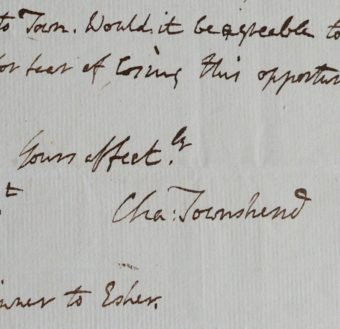 to Town. Would it be agreable to
for fear of losing this opportun
Yours affect.ly
t
Cha: Townshend
inner to Esher.